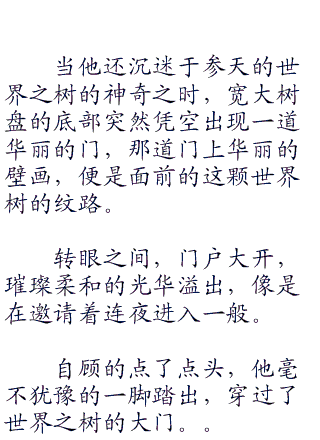 当他还沉迷于参天的世
界之树的神奇之时，宽大树
盘的底部突然凭空出现一道
华丽的门，那道门上华丽的
壁画，便是面前的这颗世界
树的纹路。
转眼之间，门户大开，
璀璨柔和的光华溢出，像是
在邀请着连夜进入一般。
自顾的点了点头，他毫
不犹豫的一脚踏出，穿过了
世界之树的大门。。